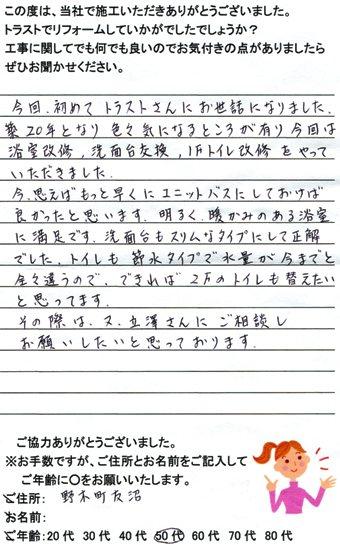 この度は、当社で施工いただきありがとうございました。
トラストでリフォームしていかがでしたでしょうか？
工事に関してでも何でも良いのでお気付きの点がありましたら
ぜひお聞かせください。
今回、初めて トラストさんにお世話になりました。
築20年となり 色々気になるところが有り 今回は
浴室改修，洗面台交換，1Fトイレ改修 をやって
いただきました。
今、思えばもっと早くに ユニットバスにしておけば
良かったと思います。明るく、暖かみのある浴室
に満足です。洗面台もスリムなタイプにして正解
でした。トイレも 節水タイプで水量が今までと
全々違うので、できれば 2Fのトイレも替えたい
と思ってます。
その際は、又、立澤さんに ご相談し
お願いしたいと思っております。
ご協力ありがとうございました。
※お手数ですが、ご住所とお名前をご記入して
ご年齢に〇をお願いいたします。
ご住所: 野木町友沼
お名前:
ご年齢:20代 30代 40代 50代 60代 70代 80代